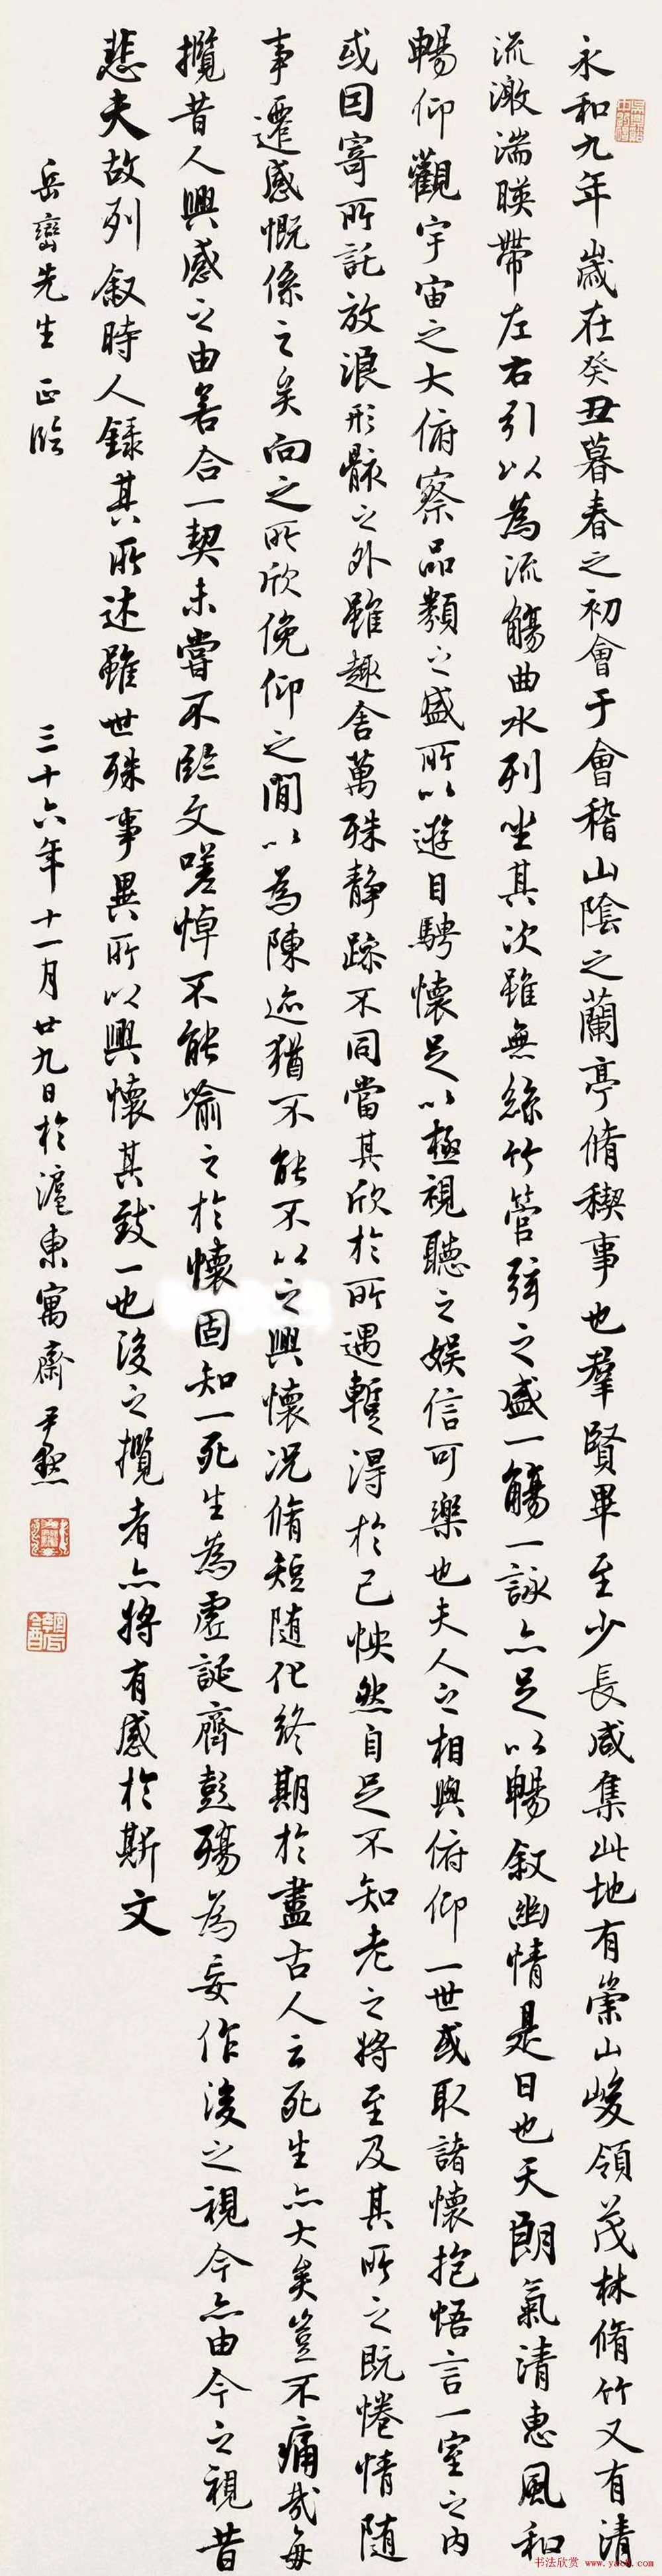 永和九年歲在癸丑暮春之初會于會稽山陰之蘭亭脩稧事也羣賢畢至少長咸集此地有崇山峻領茂林脩竹又有清
流激湍暎帶左右引以為流觴曲水列坐其次雖無絲竹管弦之盛一觴一詠亦足以暢叙幽情是日也天朗氣清惠風和
暢仰觀宇宙之大俯察品類之盛所以遊目騁懷足以極視聽之娛信可樂也夫人之相與俯仰一世或取諸懷抱悟言一室之內
或因寄所託放浪形骸之外雖趣舍萬殊静躁不同當其欣於所遇蹔得於己怏然自足不知老之將至及其所之既惓情隨
事遷感慨係之矣向之所欣俛仰之閒以為陳迹猶不能不以之興懷況脩短隨化終期於盡古人云死生亦大矣豈不痛哉每
攬昔人興感之由若合一契未嘗不臨文嗟悼不能喻之於懷固知一死生為虛誕齊彭殤為妄作後之視今亦由今之視昔
悲夫故列叙時人錄其所述雖世殊事異所以興懷其致一也後之攬者亦將有感於斯文
岳巒先生正臨
三十六年十一月廿九日於滬東寓齋尹默
书法欣赏 www.yac8.com